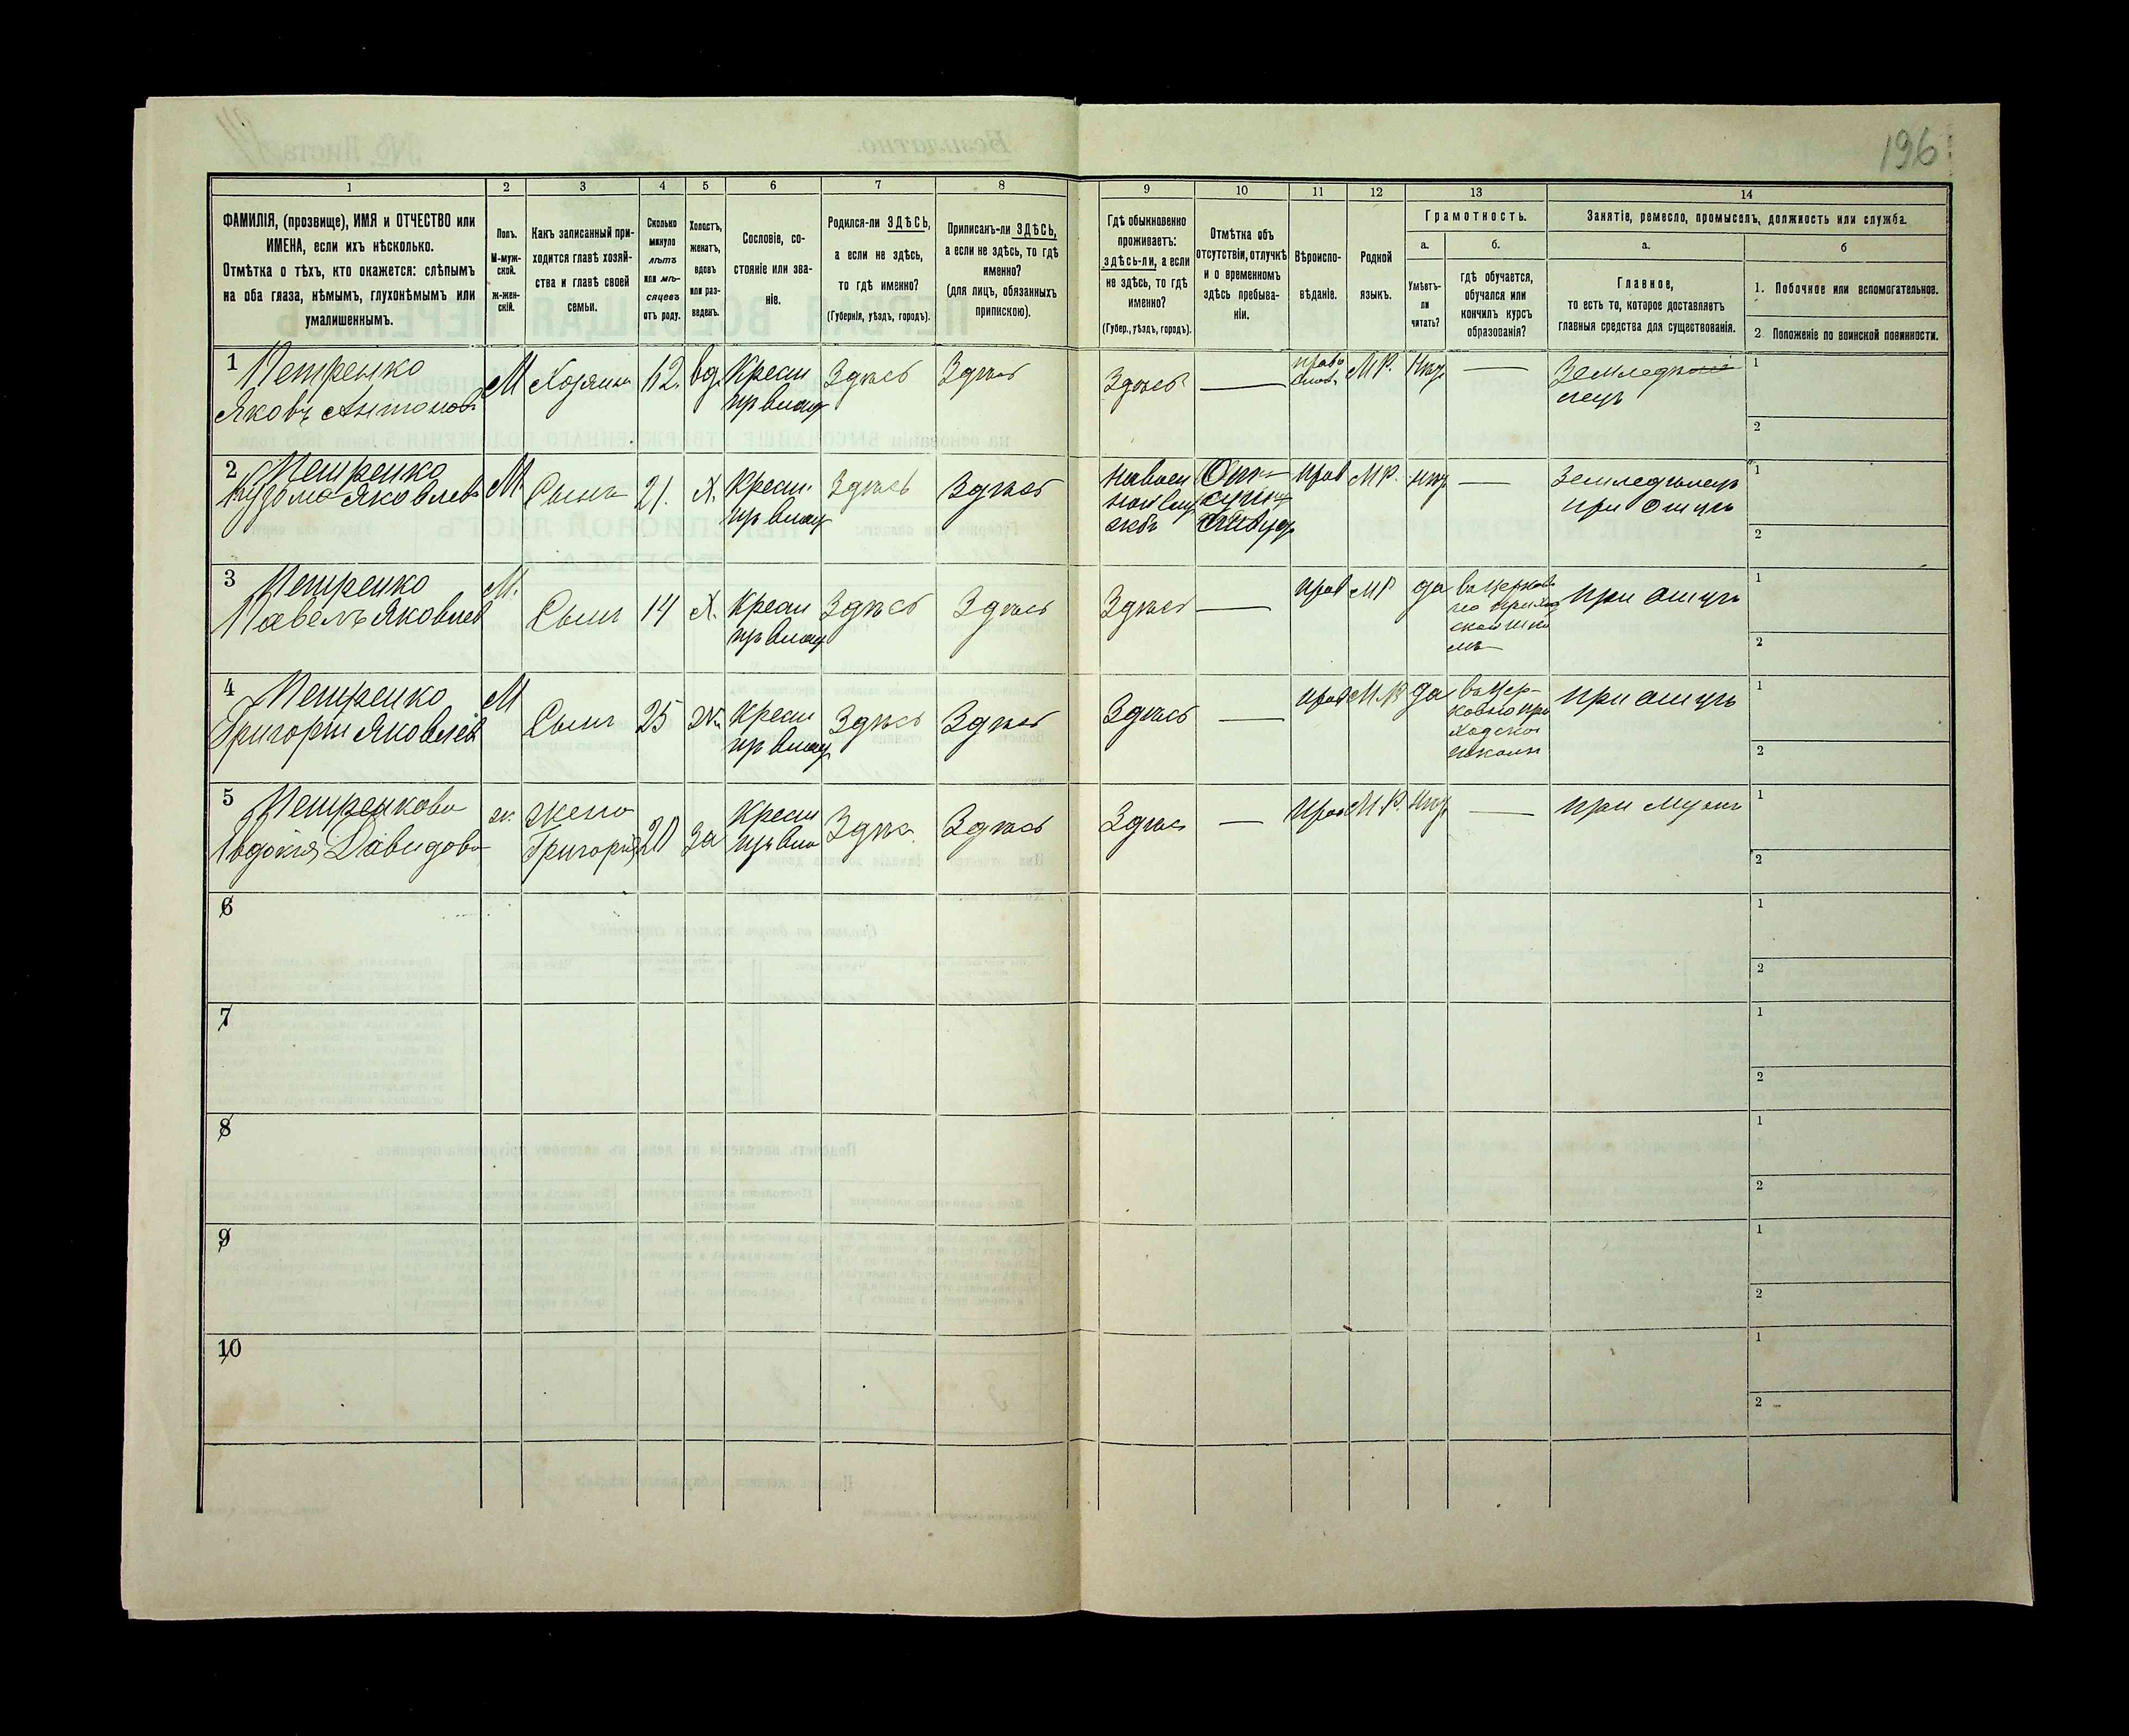 196
1 2 3 4 5 6 7 8 9 10 11 12 13 14
ФАМИЛІЯ, (прозвище), ИМЯ и ОТЧЕСТВО или
ИМЕНА, если ихъ нѣсколько.
Отмѣтка о тѣхъ, кто окажется: слѣпымъ
на оба глаза, нѣмымъ, глухонѣмымъ или
умалишеннымъ.
Полъ.
М-муж-
ской.
Ж-жен-
скій.
Какъ записанный при-
ходится главѣ хозяй-
ства и главѣ своей
семьи.
Сколько
минуло
лѣтъ
или мѣ-
сяцевъ
отъ роду.
Холостъ,
женатъ,
вдовъ
или раз-
веденъ.
Сословіе, со-
стояніе или зва-
ніе.
Родился-ли ЗДѢСЬ,
а если не здѣсь,
то гдѣ именно?
(Губернія, уѣздъ, городъ).
Приписанъ-ли ЗДѢСЬ,
а если не здѣсь, то гдѣ
именно?
(для лицъ, обязанныхъ
припискою).
Гдѣ обыкновенно
проживаетъ:
здѣсь-ли, а если
не здѣсь, то гдѣ
именно?
(Губер., уѣздъ, городъ).
Отмѣтка объ
отсутствіи, отлучкѣ
и о временномъ
здѣсь пребыва-
ніи.
Вѣроиспо-
вѣданіе.
Родной
языкъ.
Грамотность.
а.
Умѣетъ-
ли
читать?
б.
гдѣ обучается,
обучался или
кончилъ курсъ
образованія?
Занятіе, ремесло, промыселъ, должность или служба.
а.
Главное,
то есть то, которое доставляетъ
главныя средства для существованія.
б
1. Побочное или вспомогательное.
2. Положеніе по воинской повинности.
1 Петренко
Яковъ Антонов
М Хозяинъ 62. вд. Крест
изъ влад
Здѣсь Здѣсь Здѣсь — право
слав. М Р. Нѣт — Земледѣ
лецъ
1
2
2 Петренко
Кузьма Яковлев
М. Сынъ 21. Х. Крест.
изъ влад
Здѣсь Здѣсь На воен
ной слу
жбѣ Прав М Р. Нѣт — Земледѣлец
при отцѣ
1
2
3 Петренко
Павелъ Яковлев
М. Сынъ 14 Х. Крест
изъ влад
Здѣсь Здѣсь Здѣсь — Прав М Р да въ церков
но приход
ской шко
лѣ при отцѣ
1
2
4 Петренко
Григорій Яковлев
М Сынъ 25 Ж. Крест
изъ влад
Здѣсь Здѣсь Здѣсь — Прав М. Р да въ цер-
ковно при
ходской
школѣ при отцѣ
1
2
5 Петренкова
Авдотія Давидова
ж. жена
Григорія 20 за Крест
изъ вла
Здѣс Здѣсь Здѣс — Прав М. Р. Нѣт — при мужѣ
1
2
6
1
2
7
1
2
8
1
2
9
1
2
10
1
2